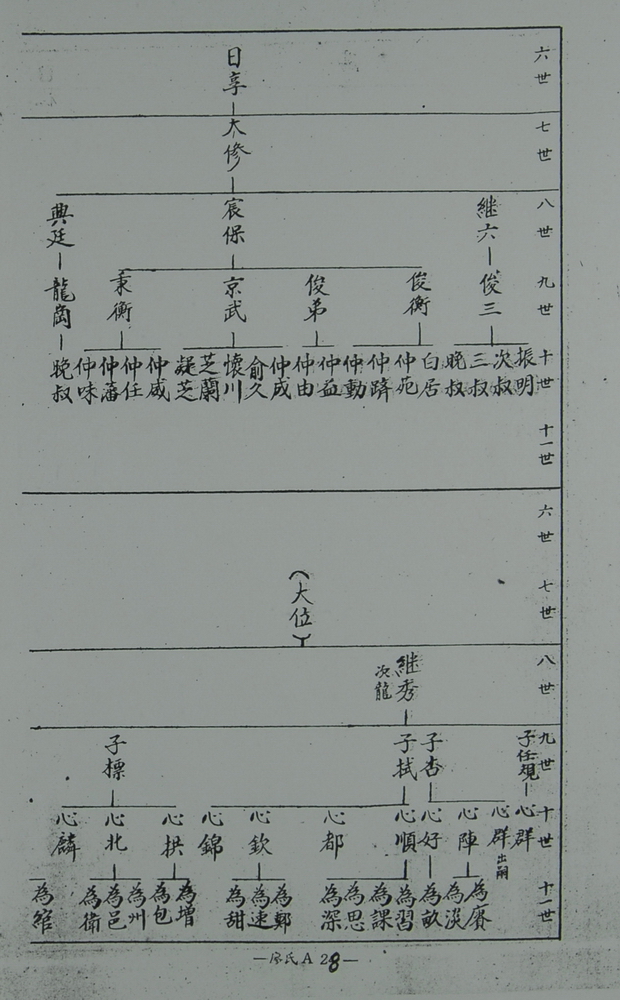 六世
日享
七世
大修
八世
継六
宸保
典廷
九世
俊三
俊衡
俊弟
京武
秉衡
龍崗
十世
振明
次叔
三叔
晚叔
白居
仲苑
仲躋
仲動
仲益
仲由
仲成
俞久
懷川
芝蘭
凝芝
仲咸
仲任
仲藩
仲味
晚叔
十一世
六世
七世
(大位)
八世
継秀
次龍
九世
子任規
子杏
子拭
子標
十世
心群
心群出嗣
心陣
心好
心順
心都
心欽
心錦
心拱
心北
心麟
十一世
為賡
為漢
為畝
為習
為課
為思
為深
為鄭
為速
為甜
為增
為包
為州
為邑
為衛
為綰
—廖氏A 28—